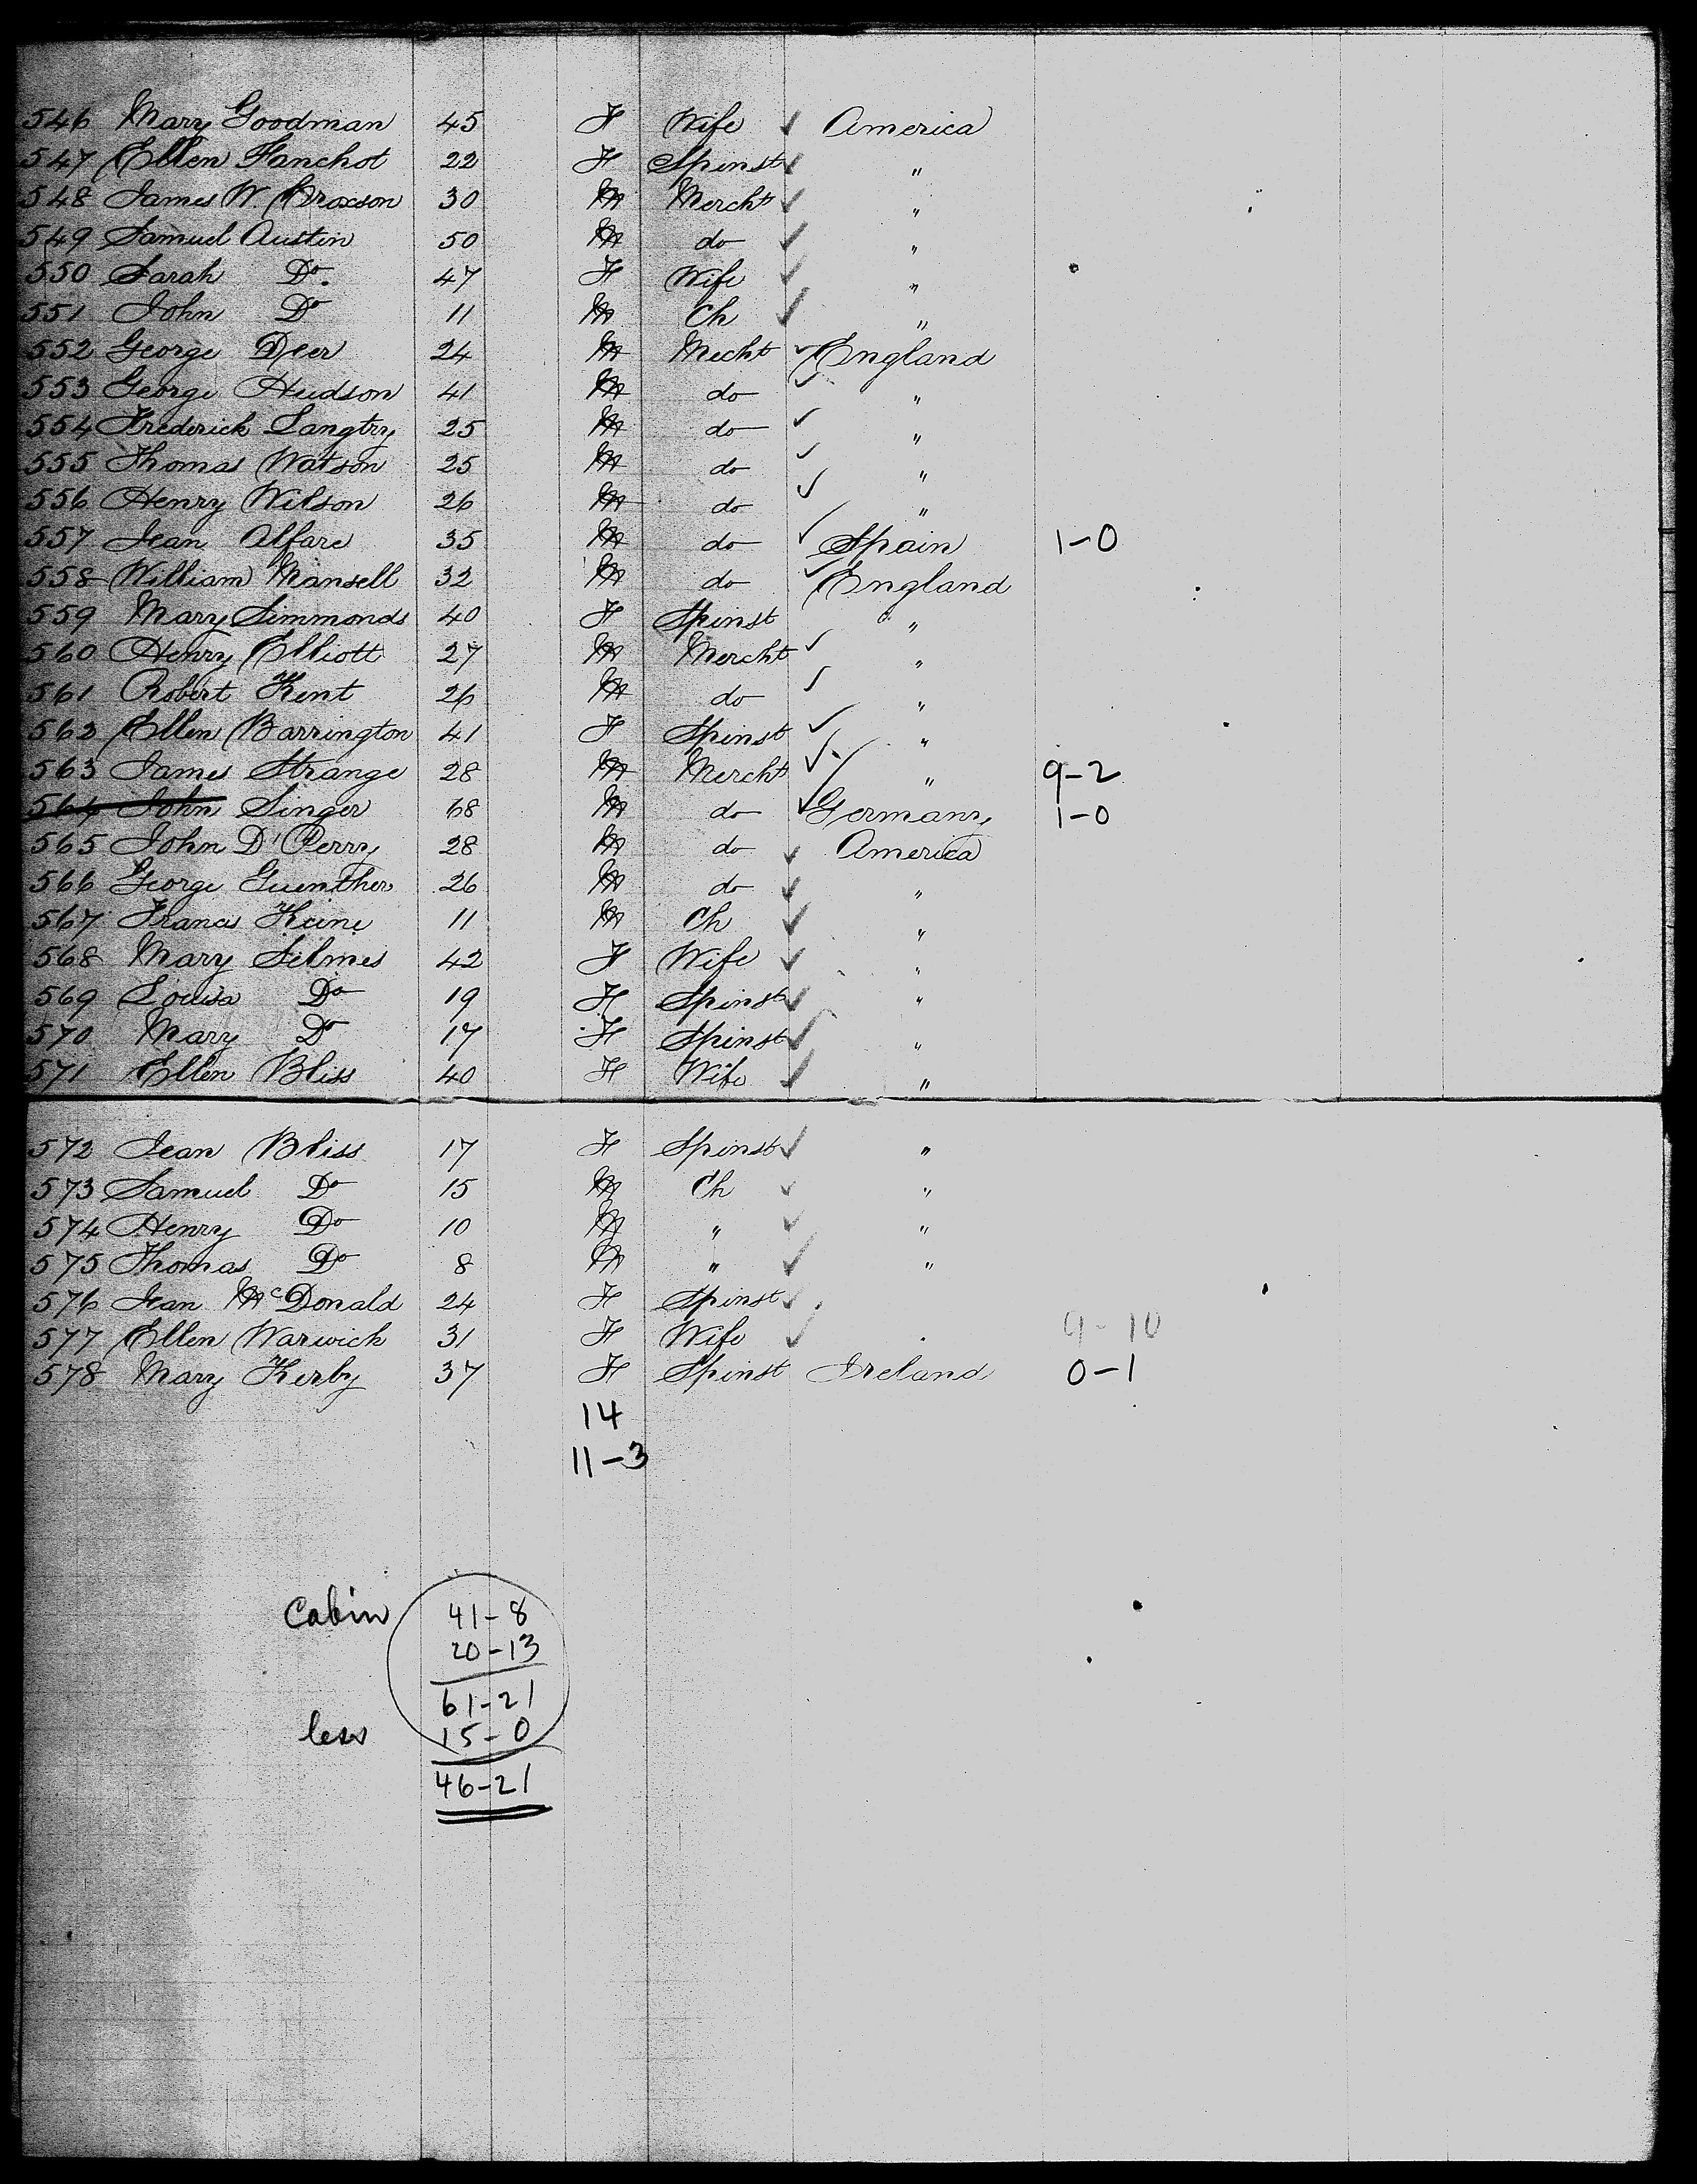 546 Mary Goodman 45 F Wife ✓ America
547 Ellen Fanchot 22 F Spinst ✓ "
548 James W. Croxson 30 M Mercht ✓ "
549 Samuel Austin 50 M do ✓ "
550 Sarah Do. 47 F Wife ✓ "
551 John Do 11 M Ch ✓ "
552 George Deer 24 M Mecht ✓ England
553 George Hudson 41 M do ✓ "
554 Frederick Langtry 25 M do ✓ "
555 Thomas Watson 25 M do ✓ "
556 Henry Wilson 26 M do ✓ "
557 Jean Alfare 35 M do ✓ Spain 1-0
558 William Mansell 32 M do ✓ England
559 Mary Simmonds 40 F Spinst "
560 Henry Elliott 27 M Mercht ✓ "
561 Robert Kent 26 M do ✓ "
562 Ellen Barrington 41 F Spinst ✓ "
563 James Strange 28 M Mercht ✓ " 9-2
564 John Singer 68 M do ✓ Germany 1-0
565 John D' Perry 28 M do ✓ America
566 George Guenther 26 M do ✓ "
567 Francis Keine 11 M Ch ✓ "
568 Mary Selmes 42 F Wife ✓ "
569 Louisa Do 19 F Spinst ✓ "
570 Mary Do 17 F Spinst ✓ "
571 Ellen Bliss 40 F Wife ✓ "
572 Jean Bliss 17 F Spinst ✓ "
573 Samuel Do 15 M Ch ✓ "
574 Henry Do 10 M " ✓ "
575 Thomas Do 8 M " ✓ "
576 Jean McDonald 24 F Spinst ✓
577 Ellen Warwick 31 F Wife ✓ 9-10
578 Mary Kerby 37 F Spinst Ireland 0-1
14
11-3
Cabin 41-8
20-13
61-21
less 15-0
46-21